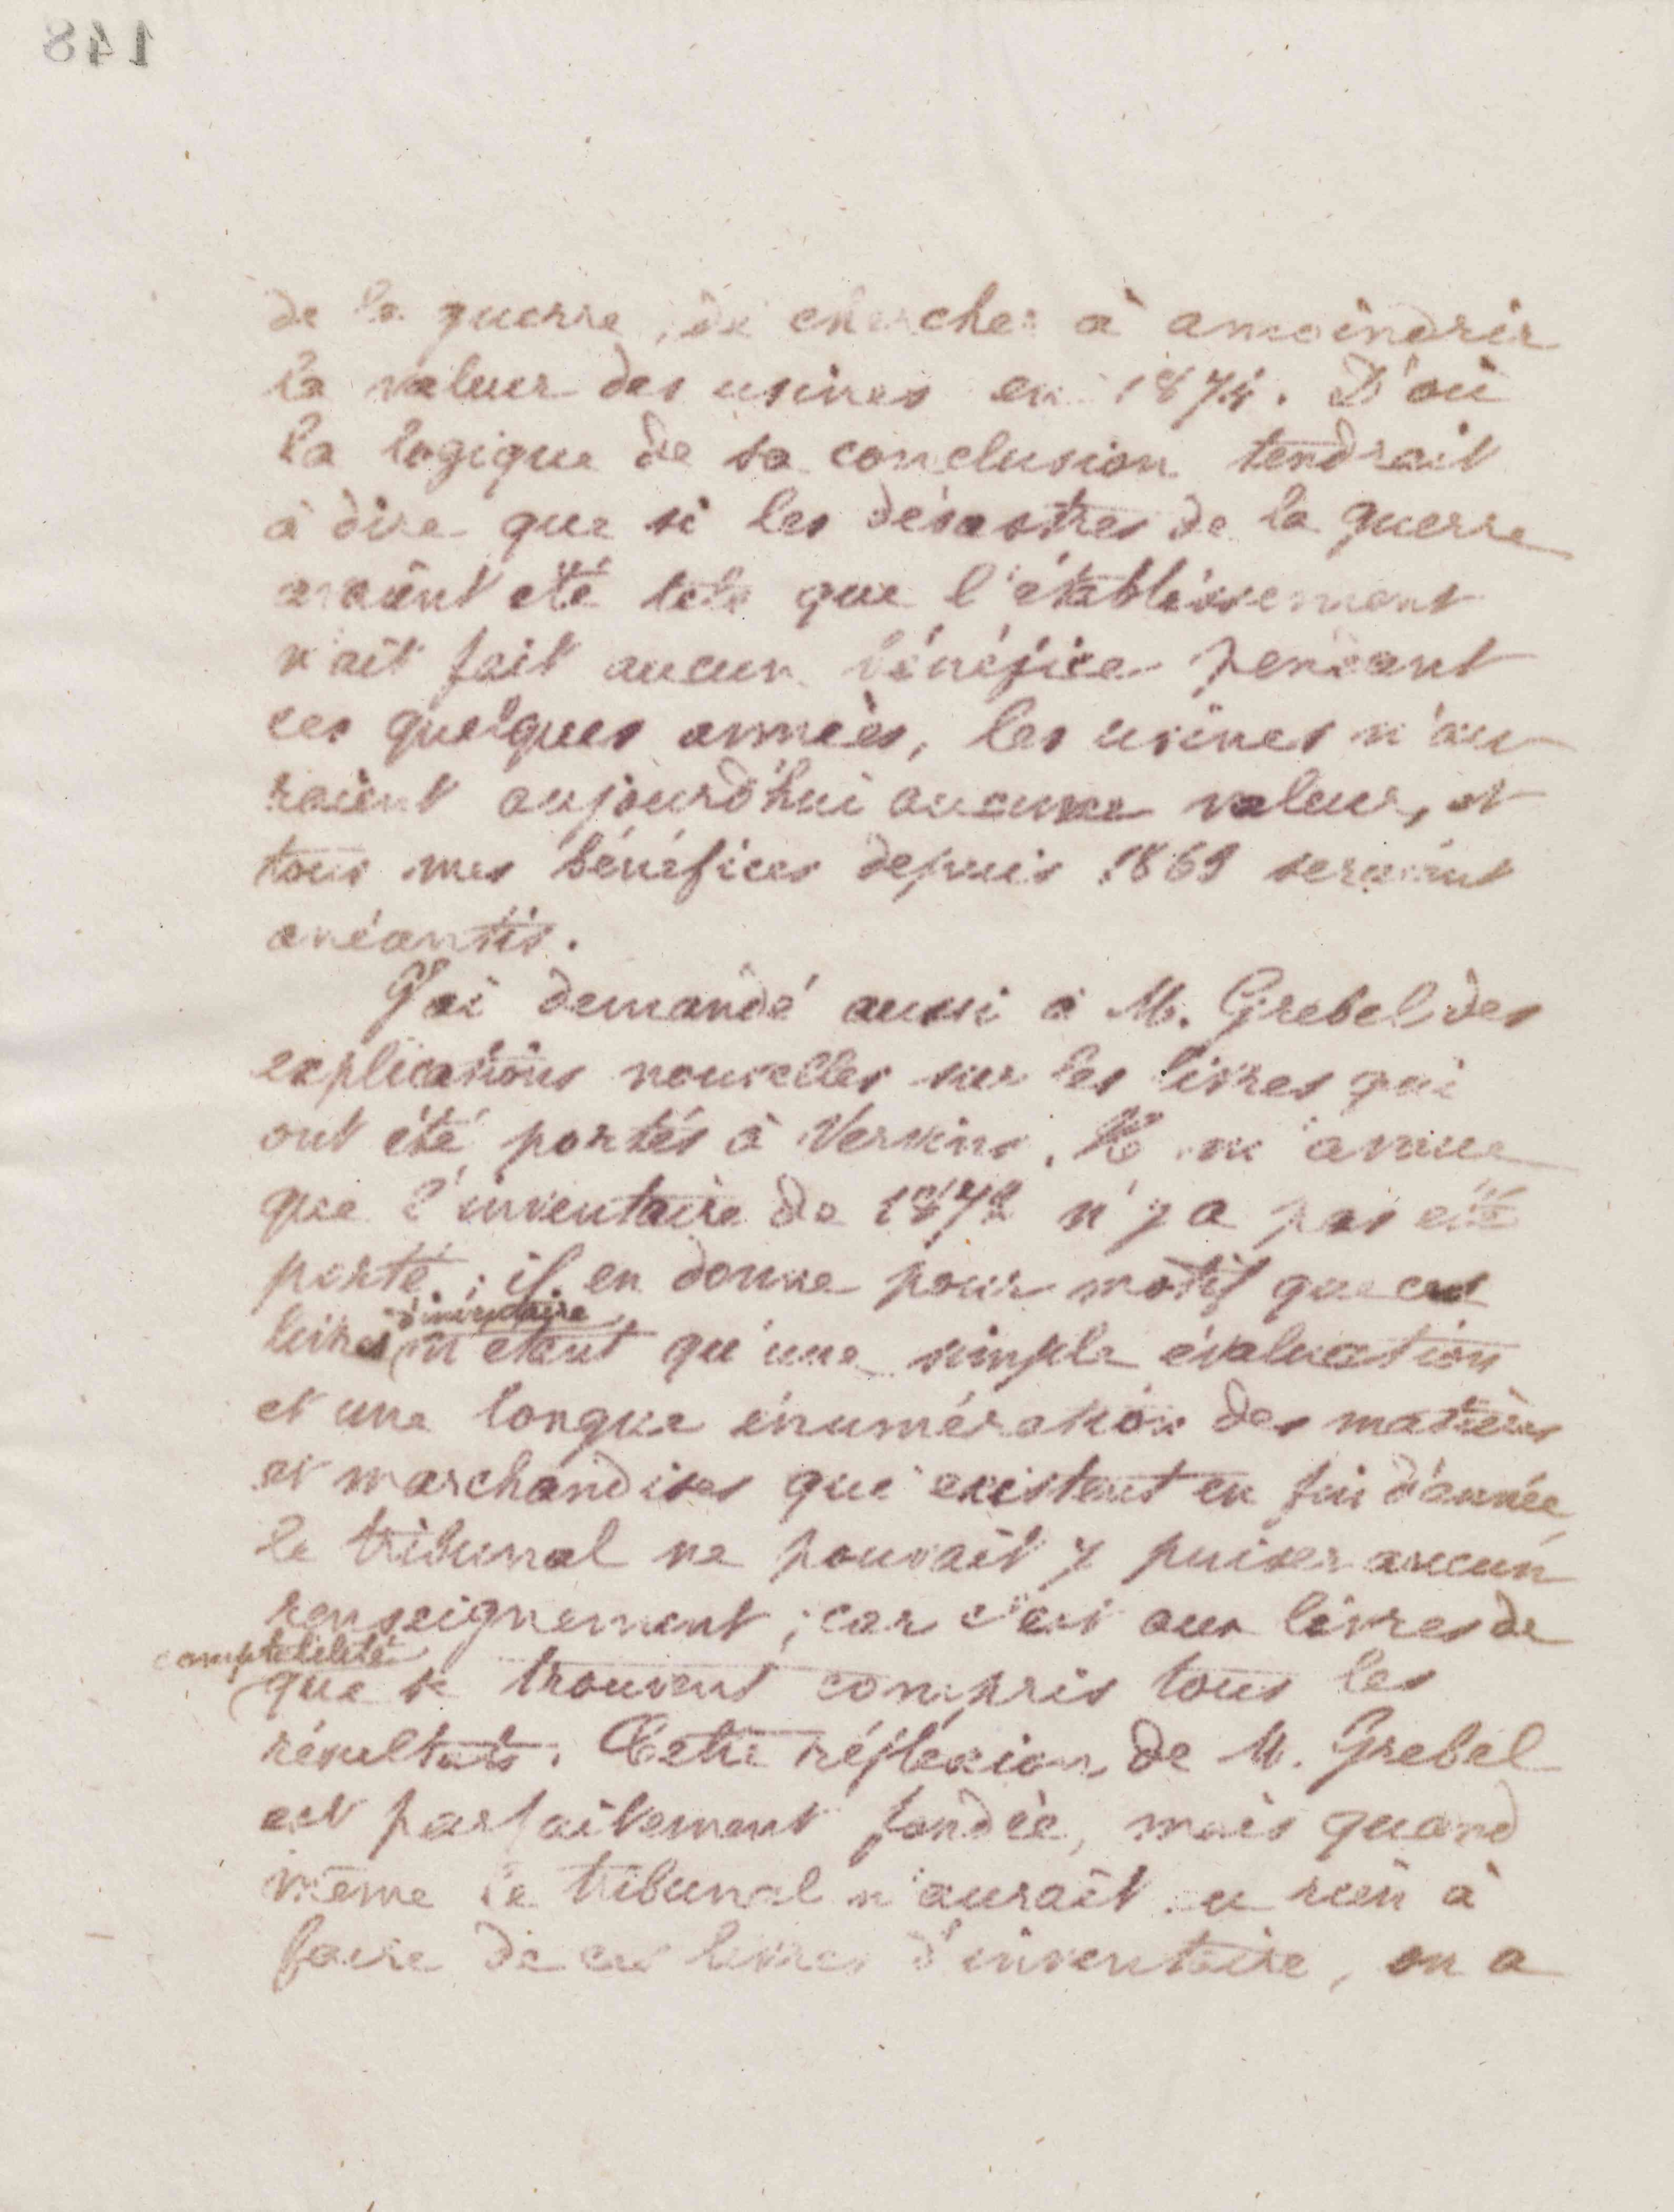 148
de la guerre, de chercher à amoindrir
la valeur des usines en 1874. D'où
la logique de sa conclusion tendrait
à dire que si les désastres de la guerre
avaient été tels que l'établissement
n'ait fait aucun bénéfice pendant
ces quelques années, les usines n'au-
raient aujourd'hui aucune valeur, et
tous mes bénéfices depuis 1869 seraient
anéantis.
J'ai demandé aussi à M. Grebel des
explications nouvelles sur les livres qui
ont été portés à Vervins. Il m'avoue
que l'inventaire de 1872 n'y a pas été
porté ; il en donne pour motif que ces
livres d'inventaire n'étant qu'une simple évaluation
et une longue énumération des matières
et marchandises qui existent en fin d'année,
le tribunal ne pouvait y puiser aucun
renseignement ; car c'est aux livres de
comptabilité
que se trouvent compris tous les
résultats. Cette réflexion de M. Grebel
est parfaitement fondée, mais quand
même le tribunal n'aurait eu rien à
faire de ces livres d'inventaire, on a